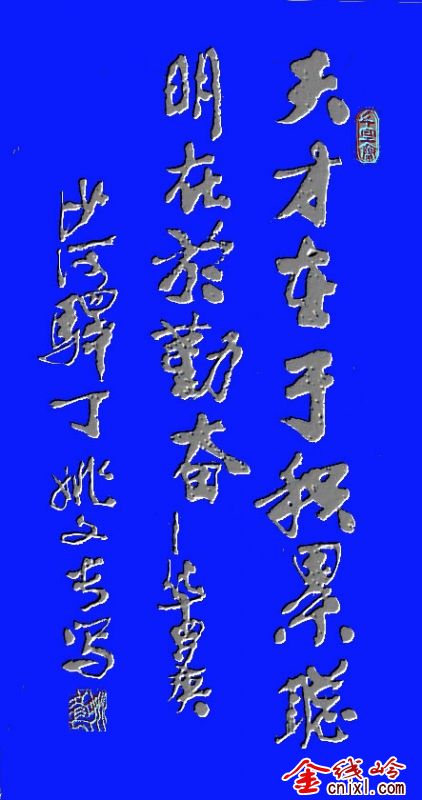 天才在于积累聪
明在於勤奋—华罗庚
沙河驛丁姚文写
金线岭
cnjxl.com